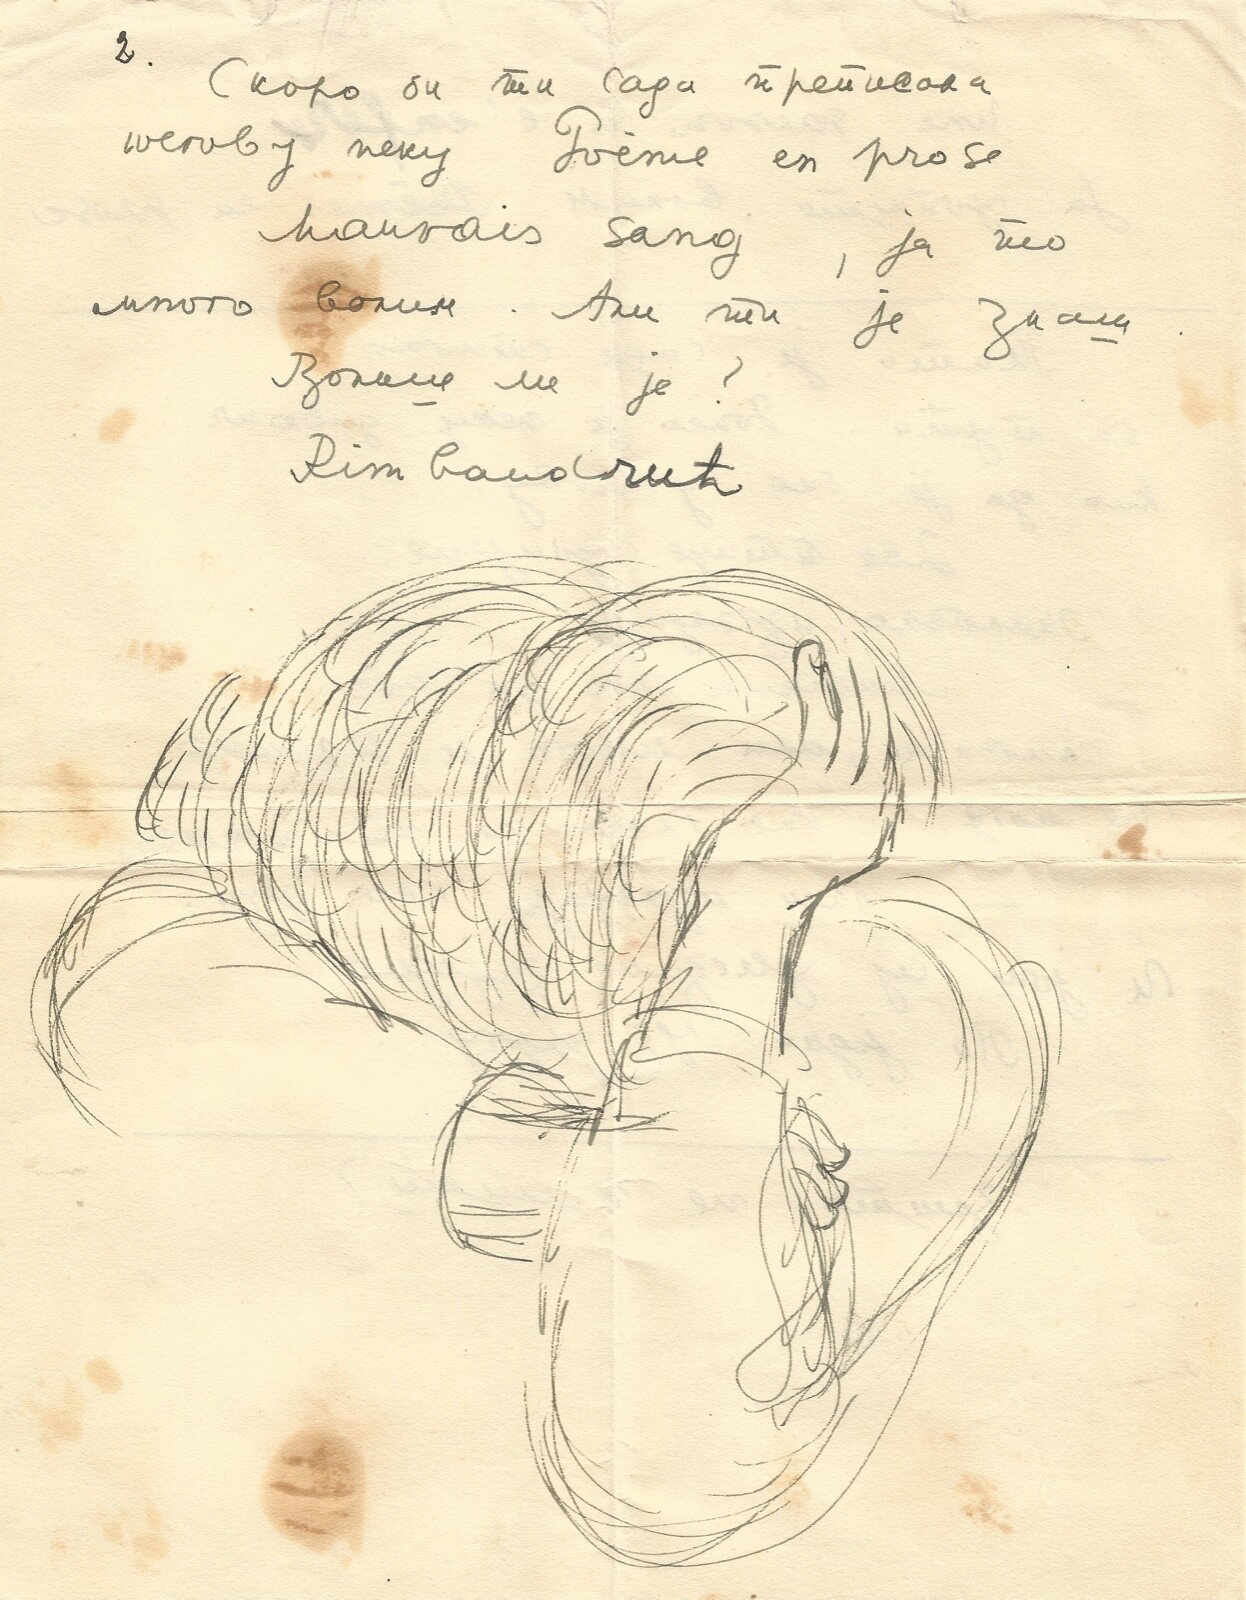 2.
Скоро би ти сада преписала
његову неку Poème en prose
Mauvais sang, ja то
много волим. Али ти је знаш.
Волиш ли је?
Rimbaud